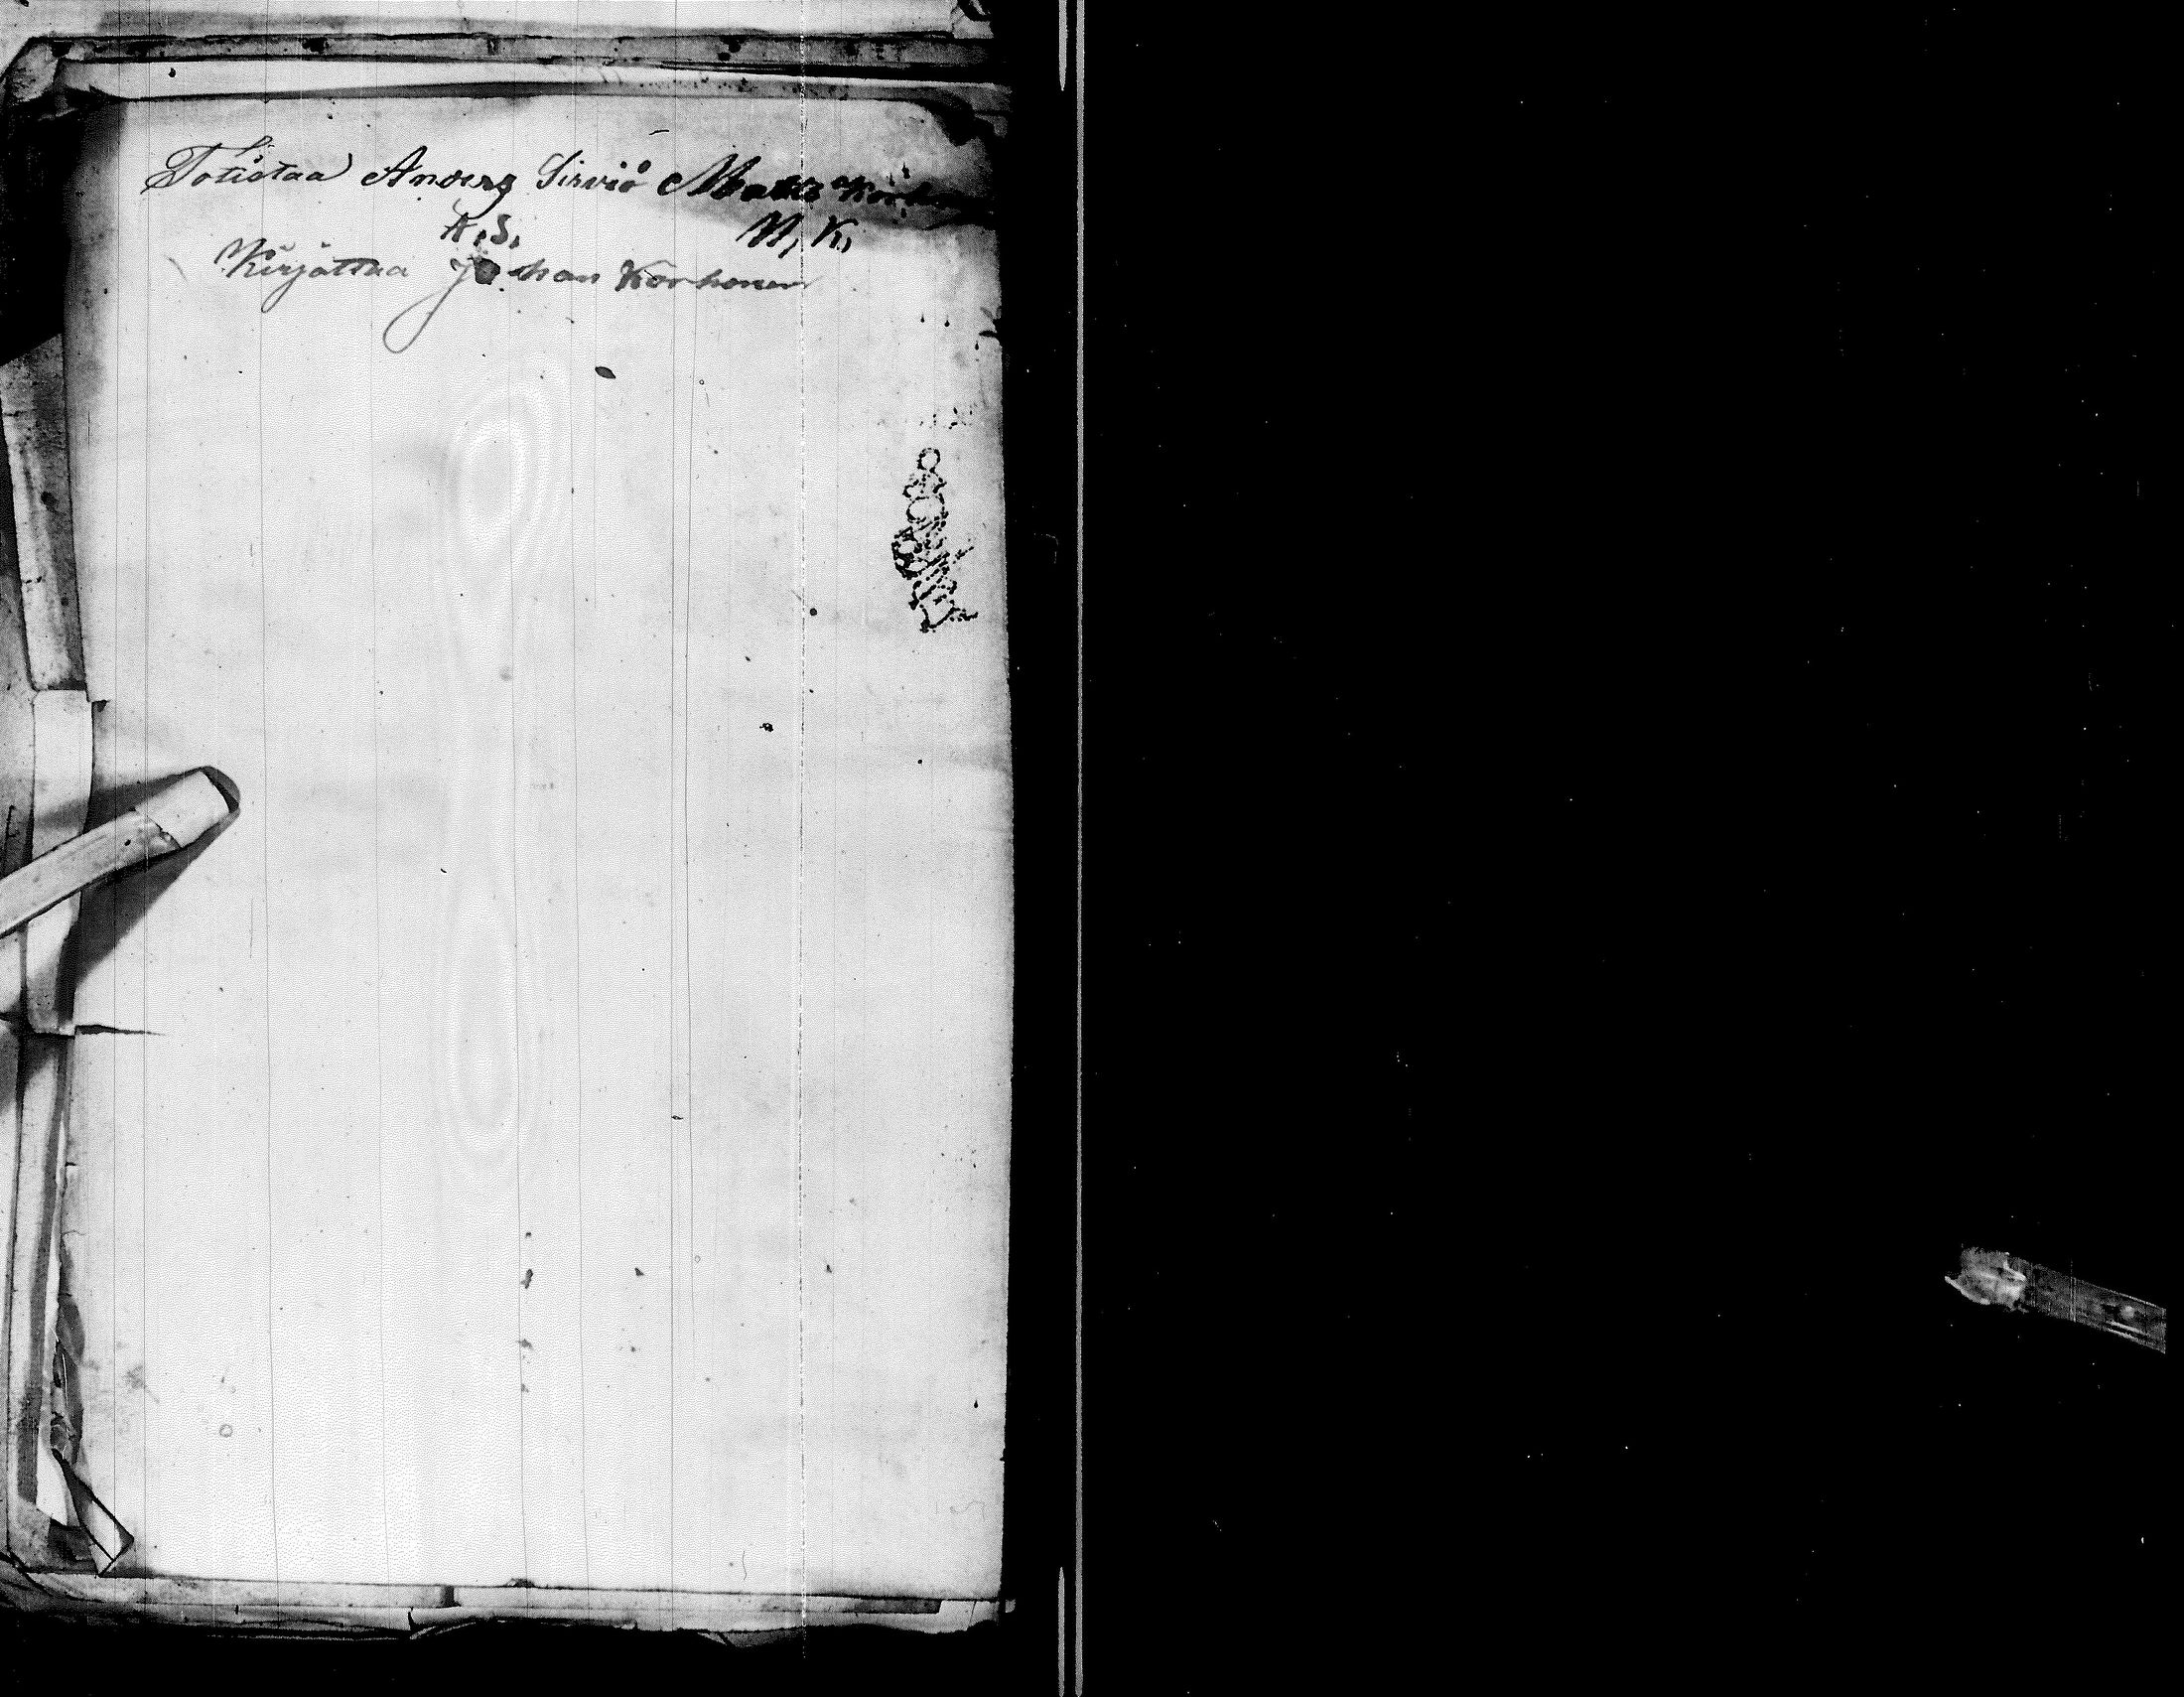 Totistaa Anders Sirviö Matts Korh
A, S, M, K,
Kirjottaa Johan Korhonen